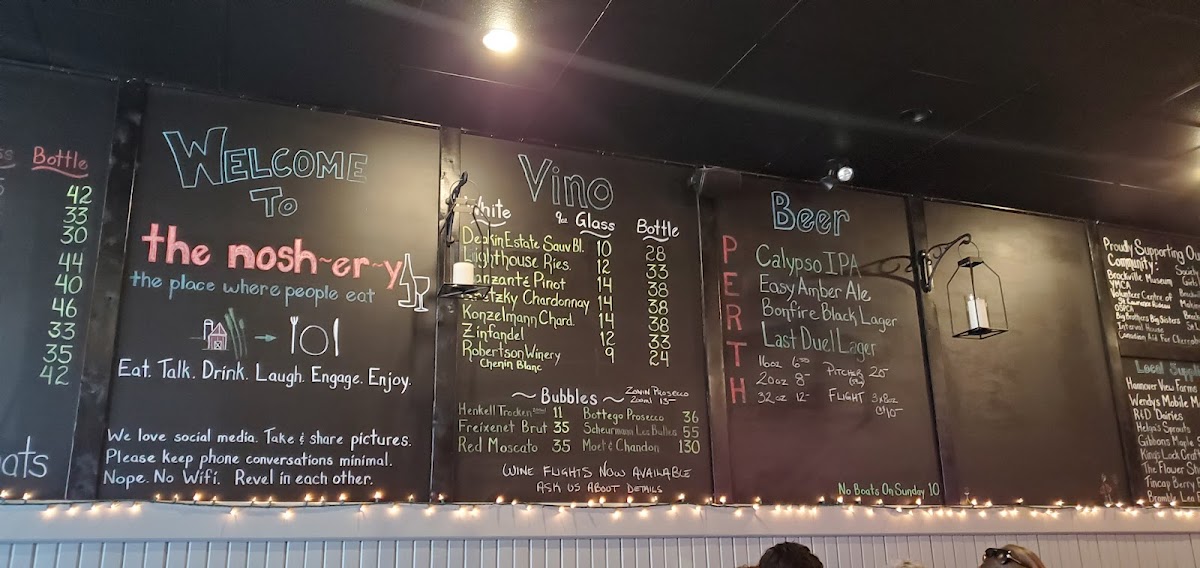 Bottle
42
33
30
44
40
46
33
35
42
WELCOME
To
the nosh~er~y
the place where people eat
Eat. Talk. Drink. Laugh. Engage. Enjoy.
We love social media. Take & share pictures.
Please keep phone conversations minimal.
Nope. No Wifi. Revel in each other.
Vino
White 9oz Glass Bottle
Deakin Estate Sauv Bl. 10 28
Lighthouse Ries. 12 33
Pinot 14 38
Chardonnay 14 38
Konzelmann Chard. 14 38
Zinfandel 12 33
Robertson Winery 9 24
Chenin Blanc
~ Bubbles ~ Zonin Prosecco
200ml 13-
Henkell Trocken 11 Bottego Prosecco 36
Freixenet Brut 35 Scheurmann Les Bulles 55
Red Moscato 35 Moet & Chandon 130
WINE FLIGHTS NOW AVAILABLE
ASK US ABOUT DETAILS
Beer
PERTH
Calypso IPA
Easy Amber Ale
Bonfire Black Lager
Last Duel Lager
16oz 6.50 PITCHER 20-
20oz 8-
32oz 12- FLIGHT 3x8oz
@10-
No Boats On Sunday 10
Proudly Supporting Our
Community:
Brockville Museum
YMCA
Volunteer Centre of
St Lawrence Rideau
OSPCA
Big Brothers Big Sisters
Interval House
Canadian Aid For
Local
Hannover View Farms
Wendy's Mobile
R&D Dairies
Helga's Sprouts
Gibbons Maple
King's Lock
The Flower
Tincap Berry